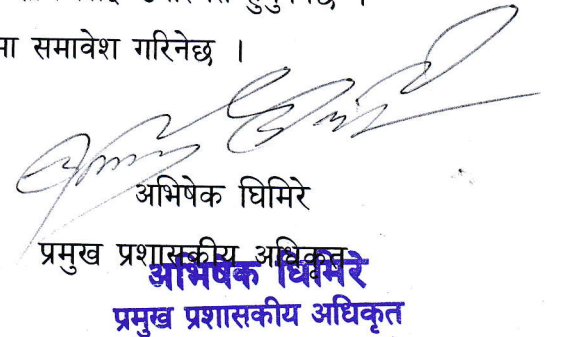 मा समावेश गरिनेछ ।
अभिषेक घिमिरे
प्रमुख प्रशासकीय अधिकृत
अभिषेक घिमिरे
प्रमुख प्रशासकीय अधिकृत